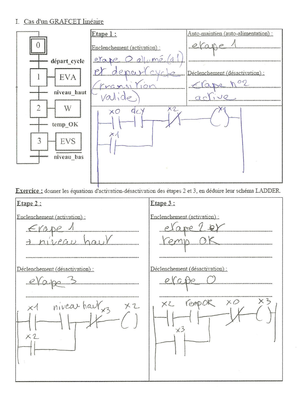 I. Cas d'un GRAFCET linéaire
0
départ_cycle
1 EVA
niveau_haut
2 W
temp_OK
3 EVS
niveau_bas
Etape 1 :
Enclenchement (activation) :
etape 0 allumé (a1)
et depart cycle
(transition
valide)
Auto-maintien (auto-alimentation) :
etape 1
Déclenchement (désactivation) :
etape n°2
active
x0 dcy x2 x1
Exercice : donner les équations d'activation-désactivation des étapes 2 et 3, en déduire leur schéma LADDER.
Etape 2 :
Enclenchement (activation) :
Etape 1
+ niveau haut
Déclenchement (désactivation) :
etape 3
x1 niveau haut x3 x2
x2
Etape 3 :
Enclenchement (activation) :
etape 2 et
temp OK
Déclenchement (désactivation) :
etape 0
x2 tempOK x0 x3
x3